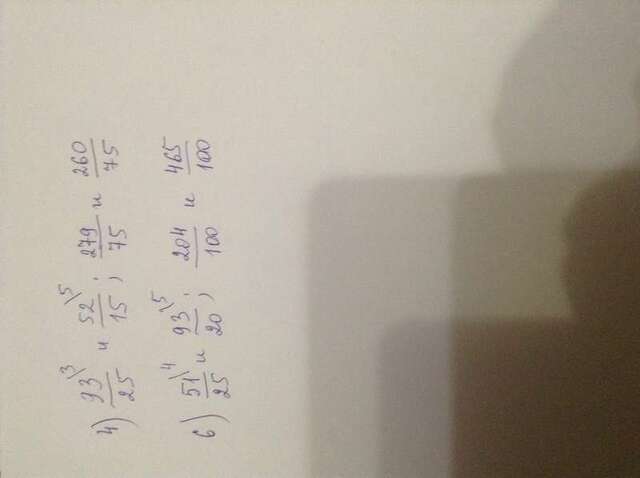 4) 93\3/25 и 52\5/15; 279/75 и 260/75
6) 51\4/25 и 93\5/20; 204/100 и 465/100